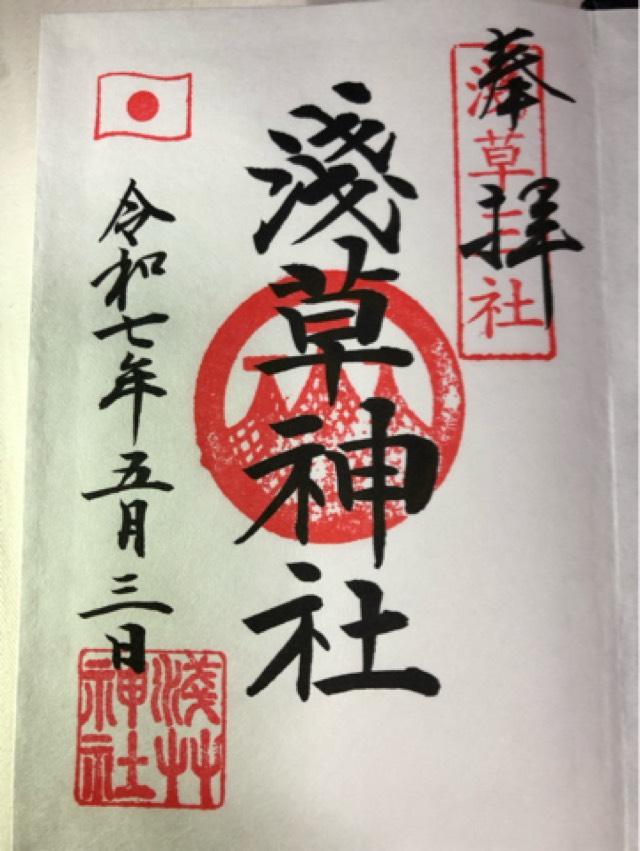 奉拝
淺草三社
淺草神社
令和七年五月三日
淺草神社